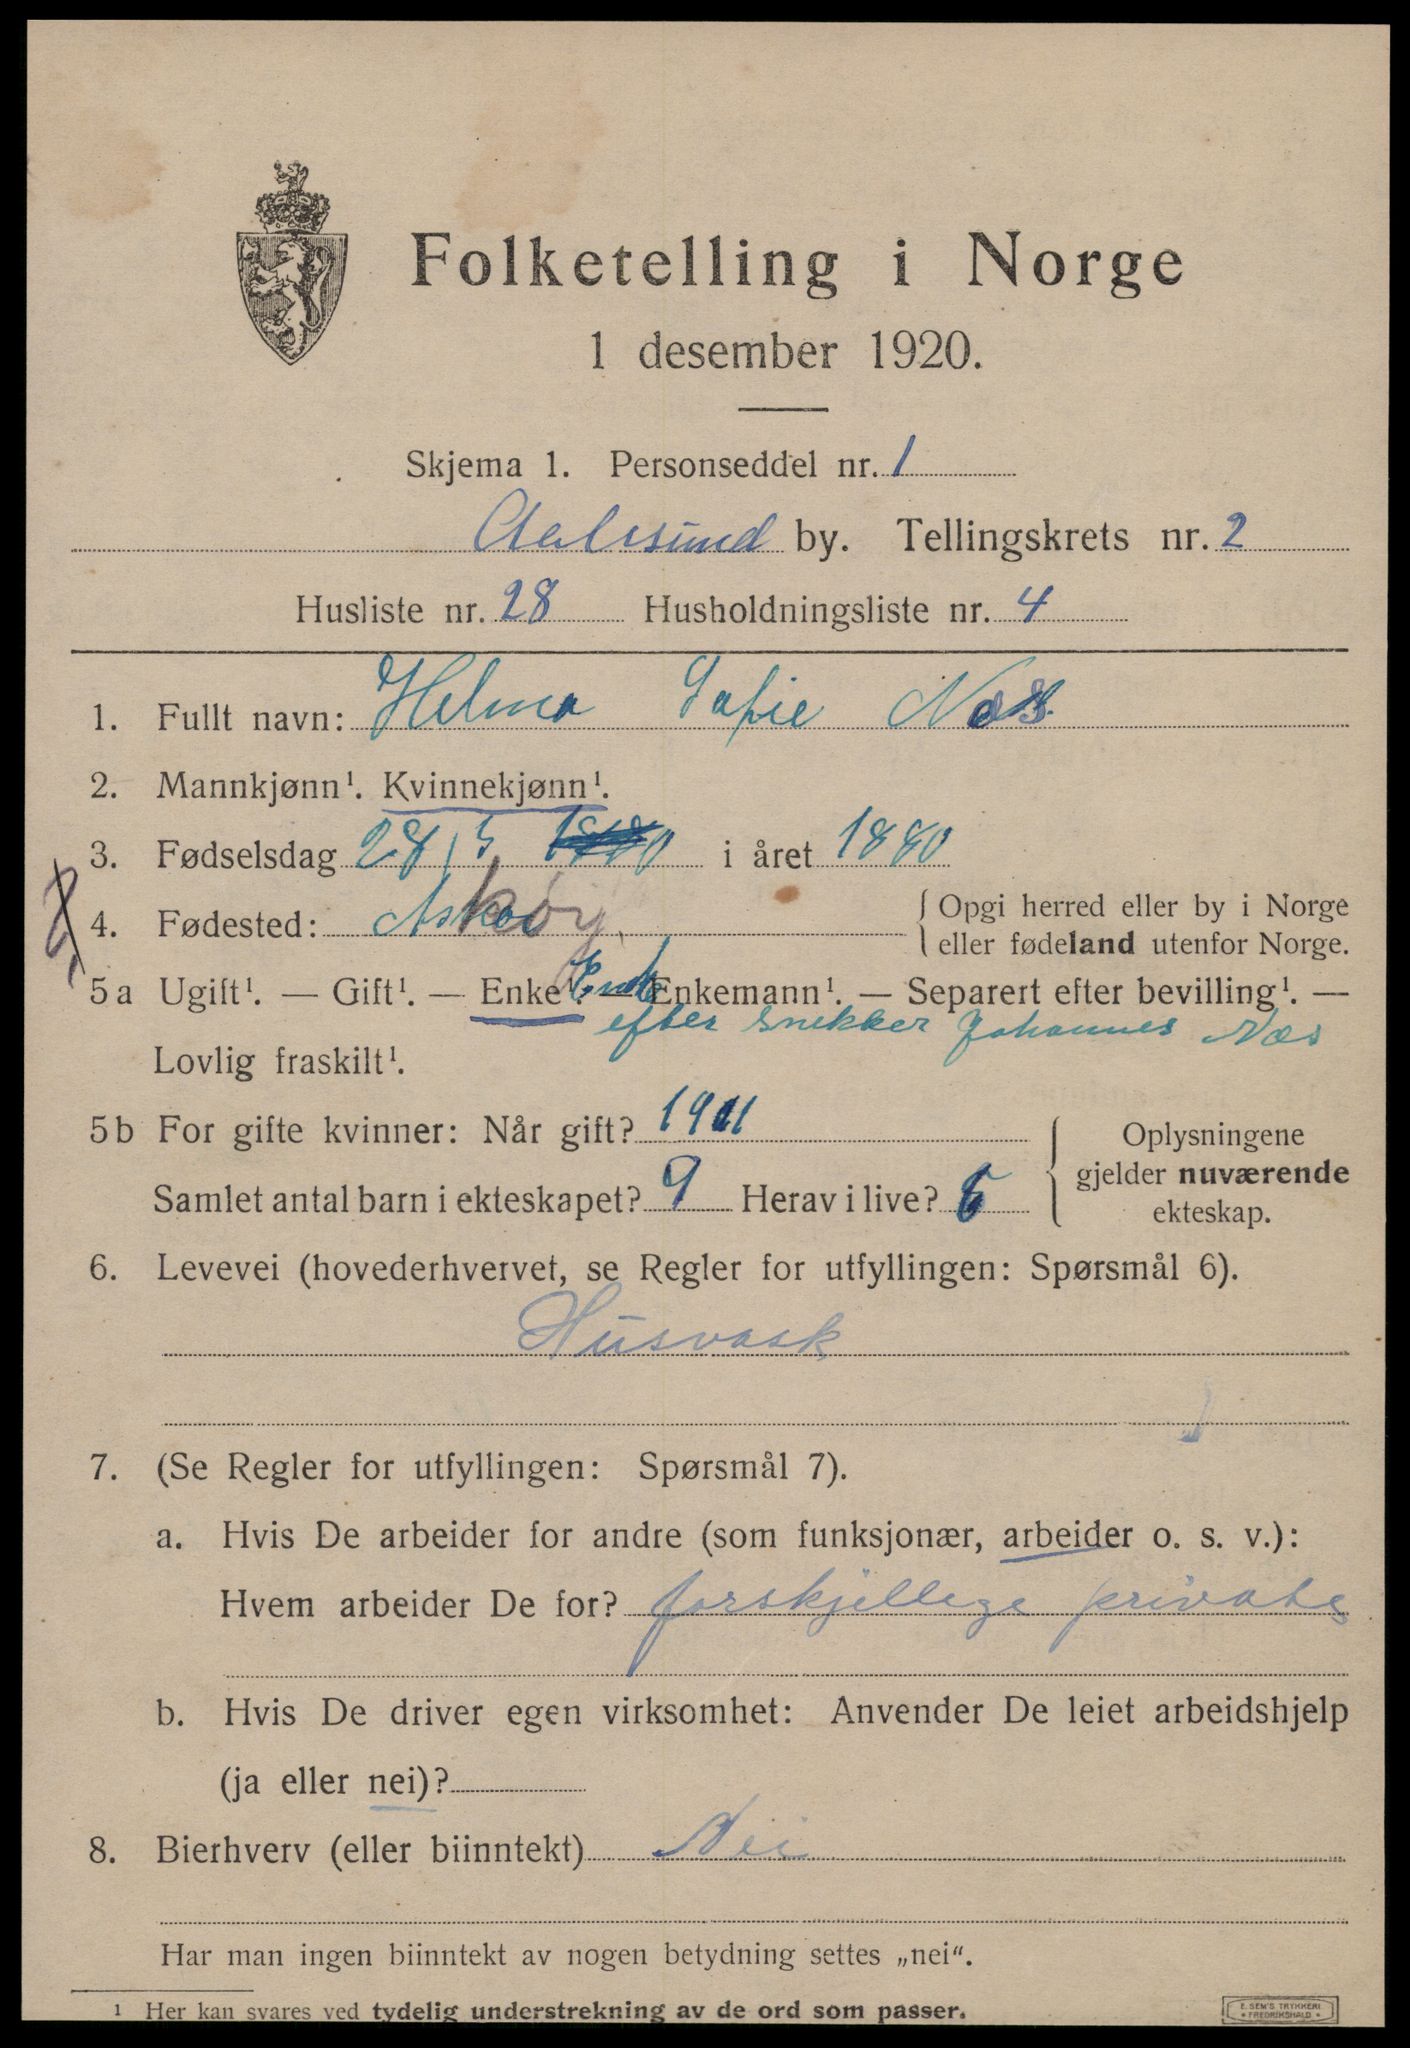 Folketelling i Norge
1 desember 1920.
Skjema 1. Personseddel nr. 1
Aalesund by. Tellingskrets nr. 2
Husliste nr. 28 Husholdningsliste nr. 4
1. Fullt navn: Helma Sofie Næs
2. Mannkjønn¹. Kvinnekjønn¹.
3. Fødselsdag 28/5 i året 1880
4. Fødested: Askøy { Opgi herred eller by i Norge
eller fødeland utenfor Norge.
5a Ugift¹. — Gift¹. — Enke¹. Enke Enkemann¹. — Separert efter bevilling¹. —
efter snekker Johannes Næs
Lovlig fraskilt¹.
5b For gifte kvinner: Når gift? 1901 { Oplysningene
gjelder nuværende
ekteskap.
Samlet antal barn i ekteskapet? 9 Herav i live?
6. Levevei (hovederhvervet, se Regler for utfyllingen: Spørsmål 6).
Husvask
7. (Se Regler for utfyllingen: Spørsmål 7).
a. Hvis De arbeider for andre (som funksjonær, arbeider o. s. v.):
Hvem arbeider De for? forskjellige private
b. Hvis De driver egen virksomhet: Anvender De leiet arbeidshjelp
(ja eller nei)?
8. Bierhverv (eller biinntekt) Nei
Har man ingen biinntekt av nogen betydning settes „nei“.
¹ Her kan svares ved tydelig understrekning av de ord som passer.
E. SEM'S TRYKKERI
FREDRIKSHALD